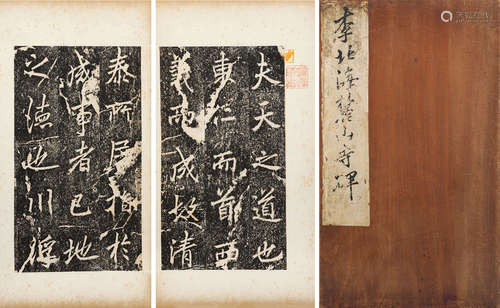 夫天之道也
東仁而首西
義而成故清
泰所居指於
成事者已地
之德也川彿
李北海麓山寺碑